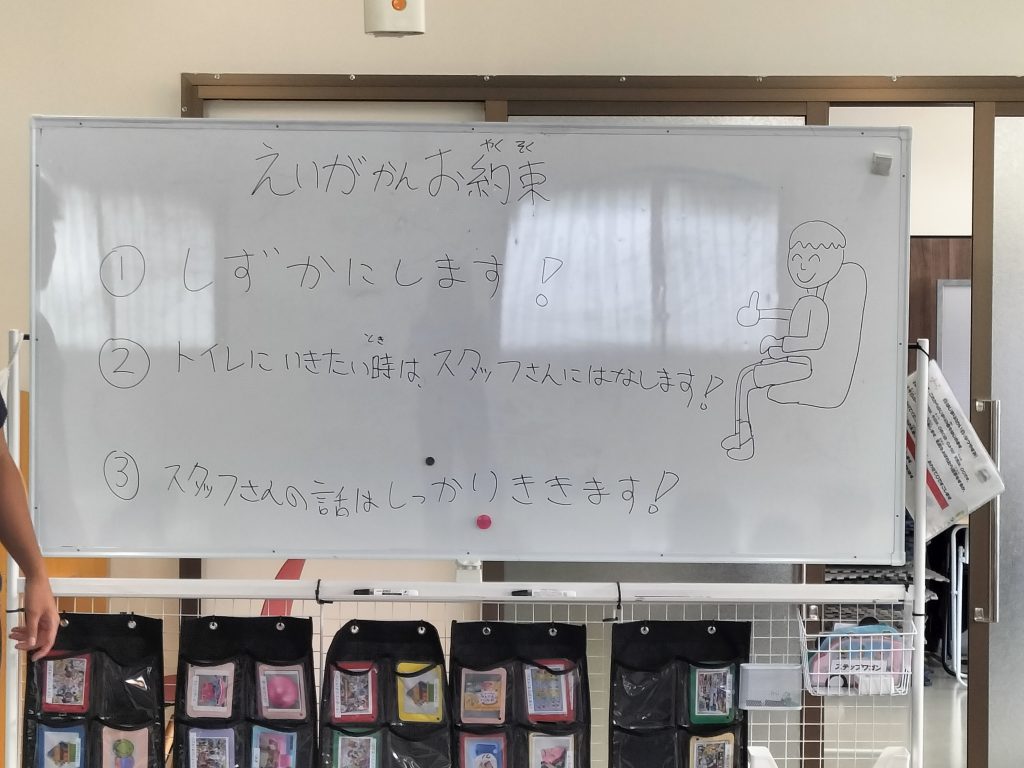 えいがかんお約束
やくそく
① しずかにします!
② トイレにいきたい時は、スタッフさんにはなします!
とき
③ スタッフさんの話はしっかりききます!
ステップワゴン